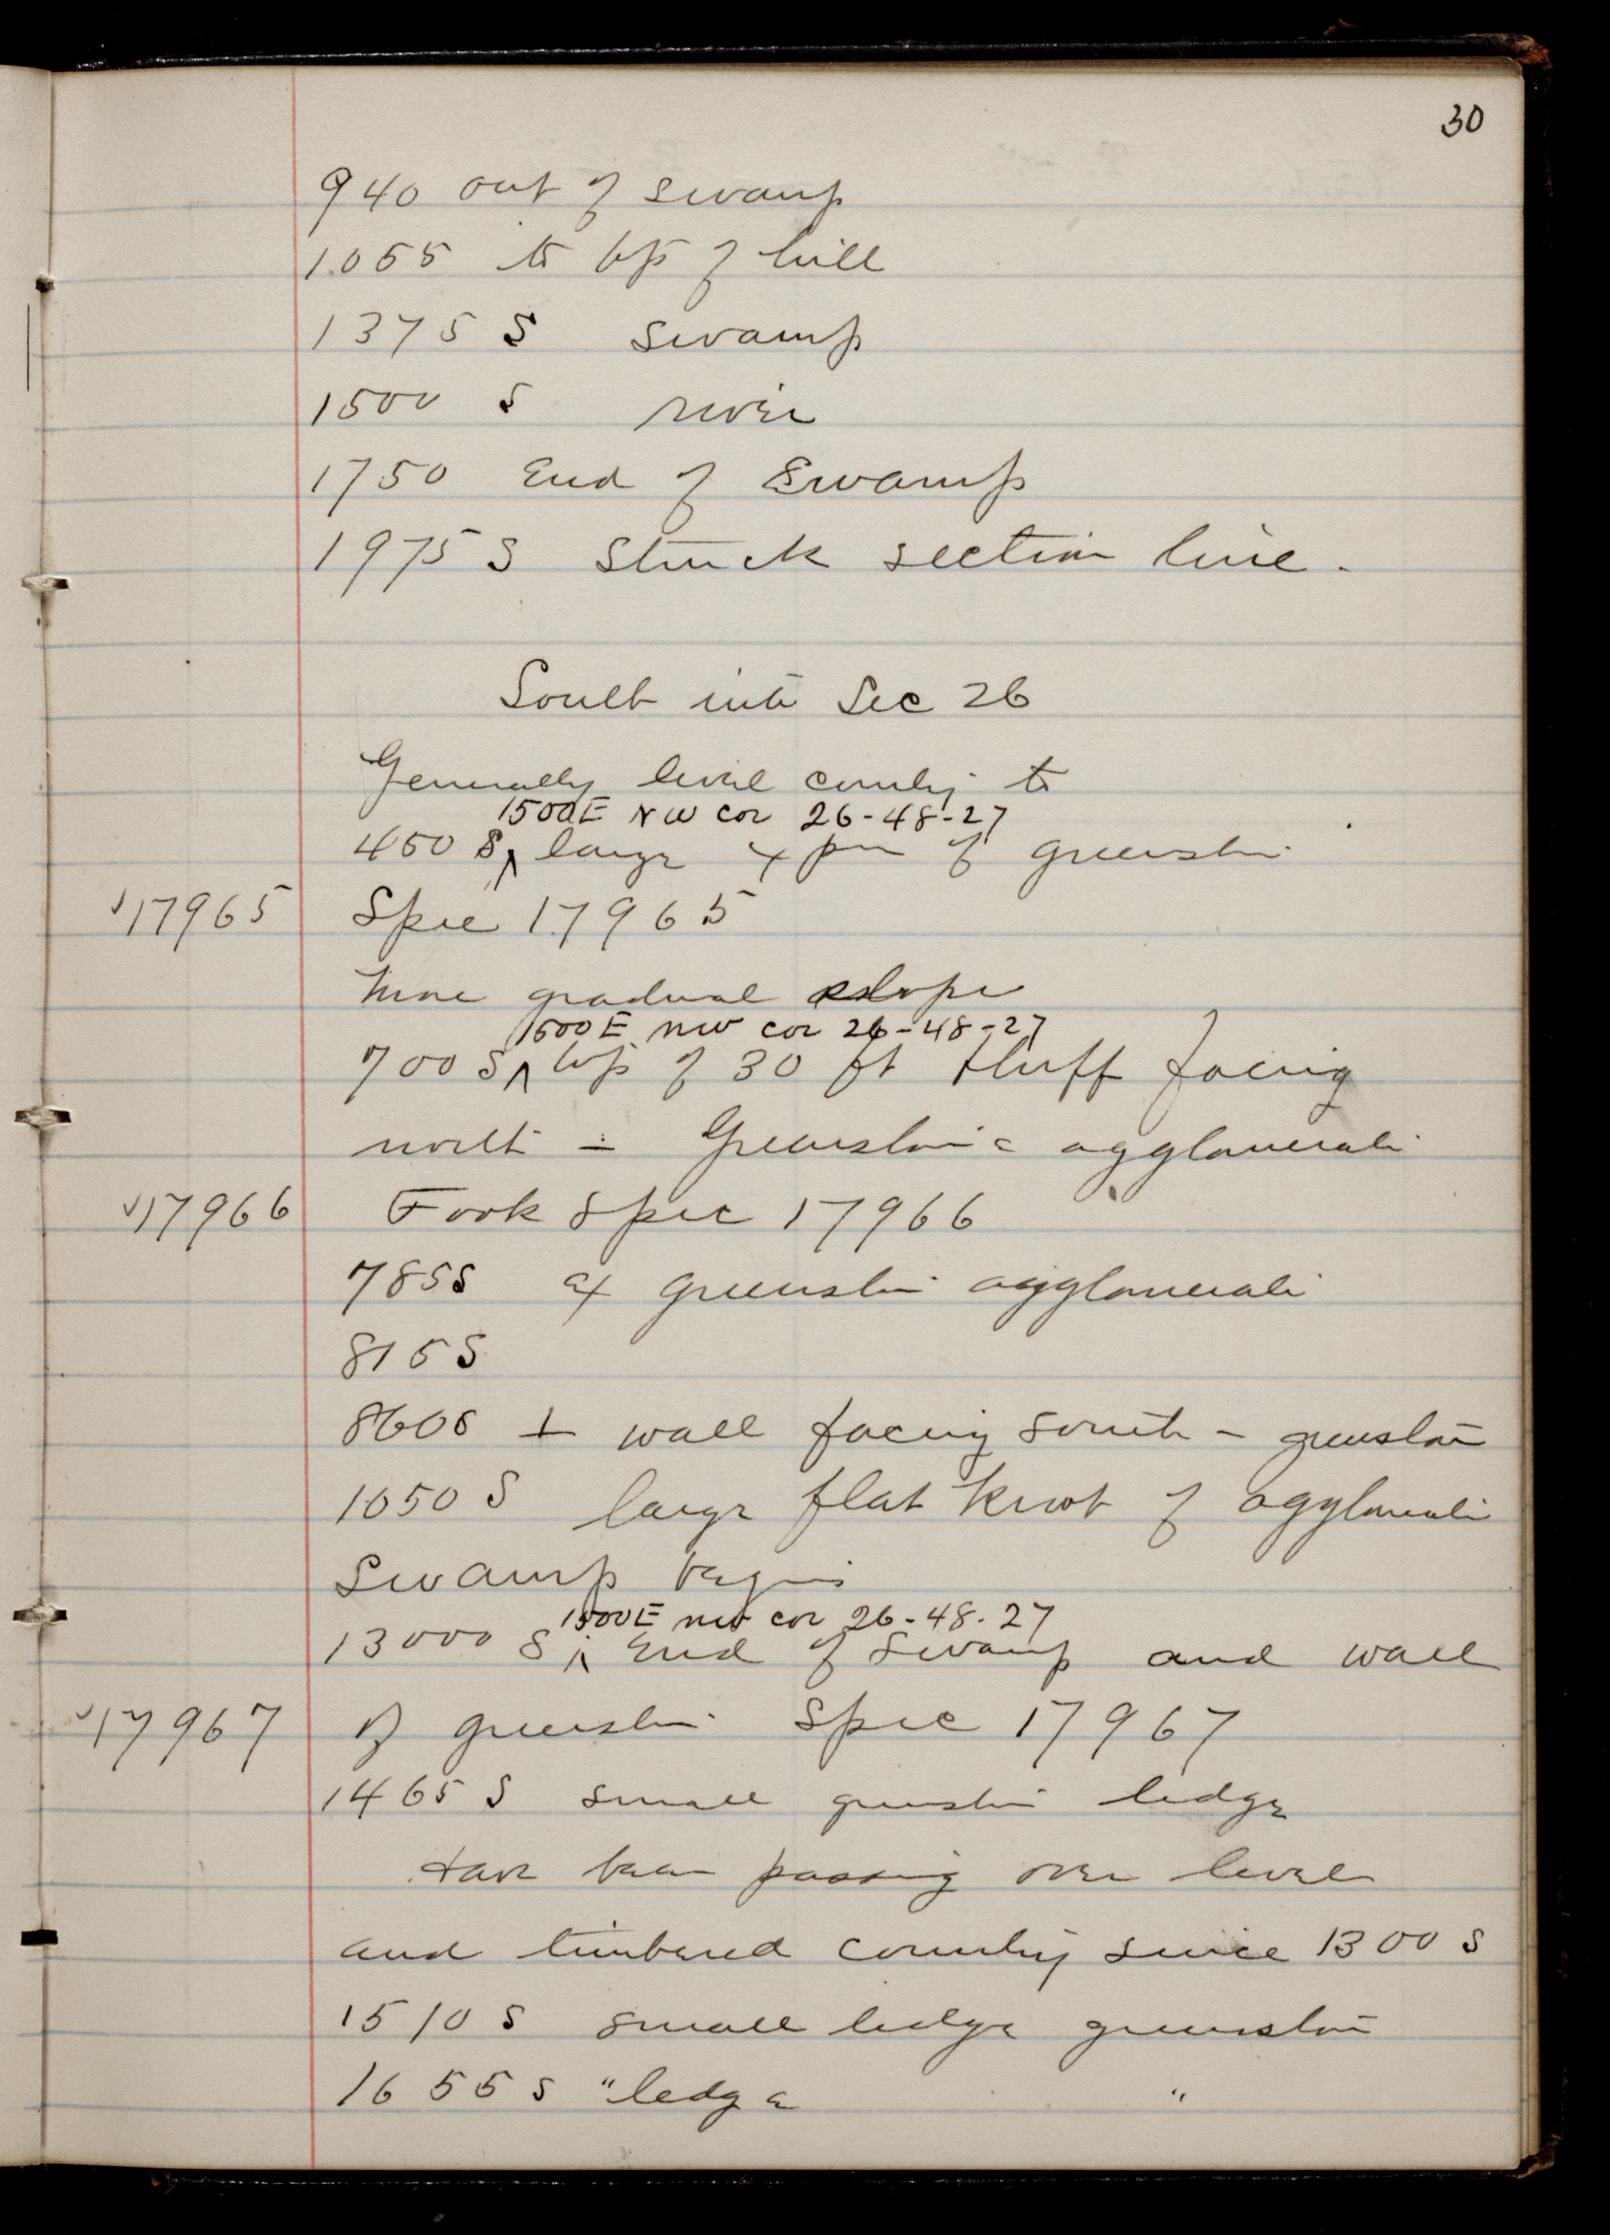 30
940 out of swamp
1055 to top of hill
1375 S swamp
1500 S river
1750 End of Swamp
1975 S Struck section line.
South into Sec 26
Generally level country to
1500E NW cor 26-48-27
450 S ^ large x pm of greenstone
17965 Spec 17965
More gradual slope
1500E NW cor 26-48-27
700 S ^ top of 30 ft bluff facing
north - Greenstone agglomerate
17966 Took Spec 17966
785S greenstone agglomerate
815 S
860S ⊥ wall facing south - greenstone
1050 S large flat knob of agglomerate
Swamp begins
1500E NW cor 26-48-27
13000 S ^ End of swamp and wall
17967 of greenstone Spec 17967
1465 S small greenstone ledge
Have been passing over level
and timbered country since 1300 S
1510 S small ledge greenstone
1655 S " ledge "